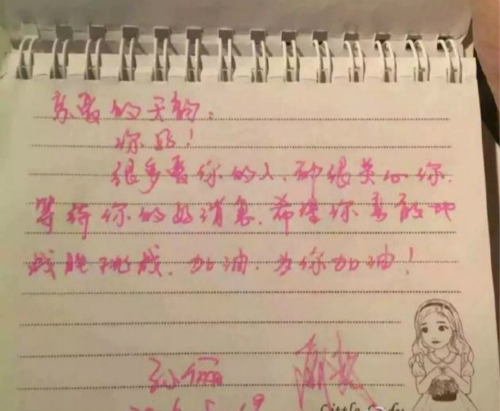 亲爱的天韵:
你好!
很多爱你的人,都很关心你.
等待你的好消息.希望你勇敢地
战胜挑战.加油.为你加油!
孙俪 邓超
Little Lady